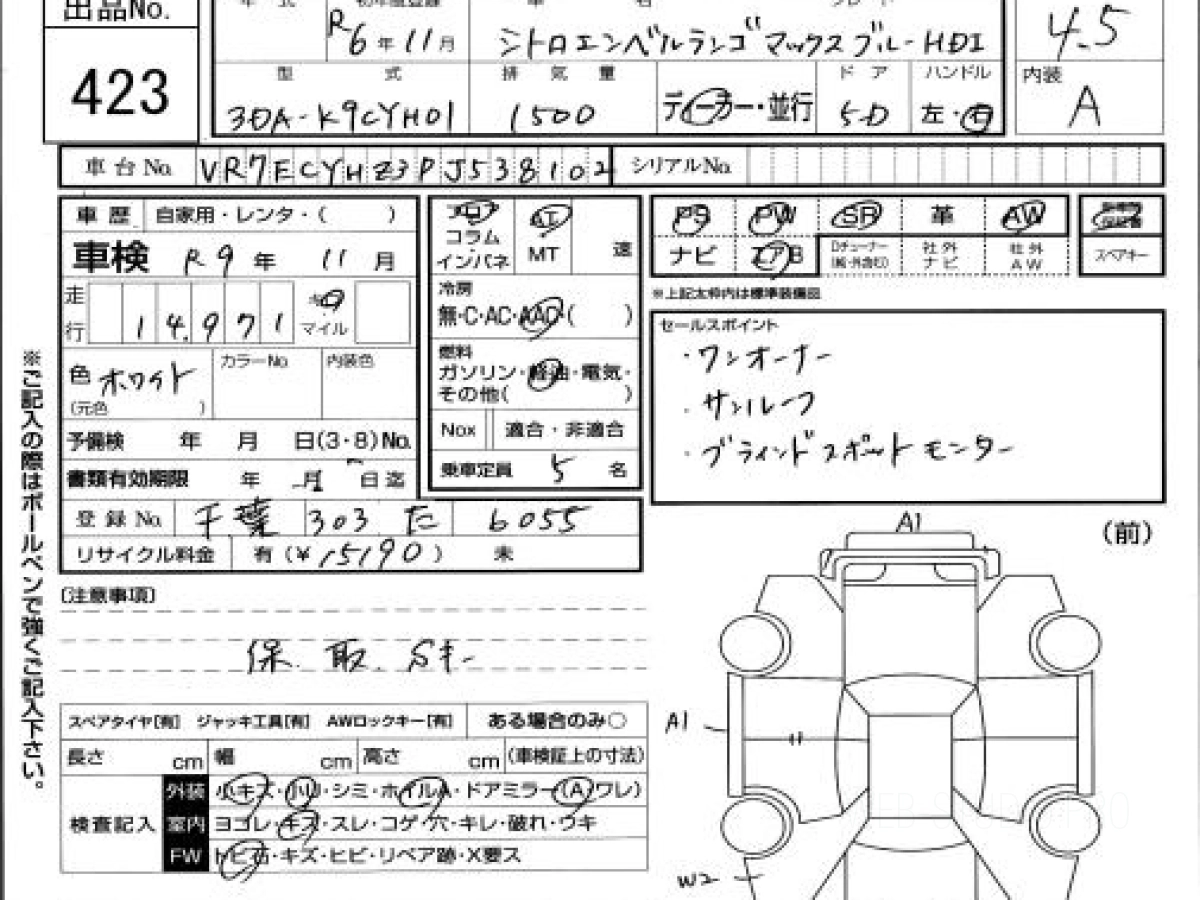 出品No.
423
年 式 初年度登録 車 名 グレード
R6年11月 シトロエンベルランゴ マックス ブルーHDI
4.5
型 式 排 気 量 ドア ハンドル 内装
3DA-K9CYH01 1500 ディーラー・並行 5D 左・右 A
車台No. VR7ECYHZ3PJ538102 シリアルNo.
車歴 自家用・レンタ・( )
車検 R9年 11月
走行 14,971 キロ マイル
色 ホワイト カラーNo. 内装色
(元色 )
予備検 年 月 日(3・8)No.
書類有効期限 年 月 日迄
登録No. 千葉 303 た 6055
リサイクル料金 有(¥15190) 未
フロア コラム・インパネ
AT MT 速
冷房
無・C・AC・AAC( )
燃料
ガソリン・軽油・電気・
その他( )
Nox 適合・非適合
乗車定員 5 名
PS PW SR 革 AW
ナビ エアB Dチューナー 社外ナビ 社外AW スペアキー
※上記太枠内は標準装備品
セールスポイント
・ワンオーナー
・サンルーフ
・ブラインドスポットモニター
※ご記入の際はボールペンで強くご記入下さい。
[注意事項]
保. 取. Sキー
スペアタイヤ[有] ジャッキ工具[有] AWロックキー[有] ある場合のみ○
長さ cm 幅 cm 高さ cm (車検証上の寸法)
検査記入
外装 小キズ・小U・シミ・ホイルA・ドアミラー(A)ワレ)
室内 ヨゴレ・キズ・スレ・コゲ・穴・キレ・破れ・ウキ
FW トビ石・キズ・ヒビ・リペア跡・X要ス
A1
(前)
A1
W2